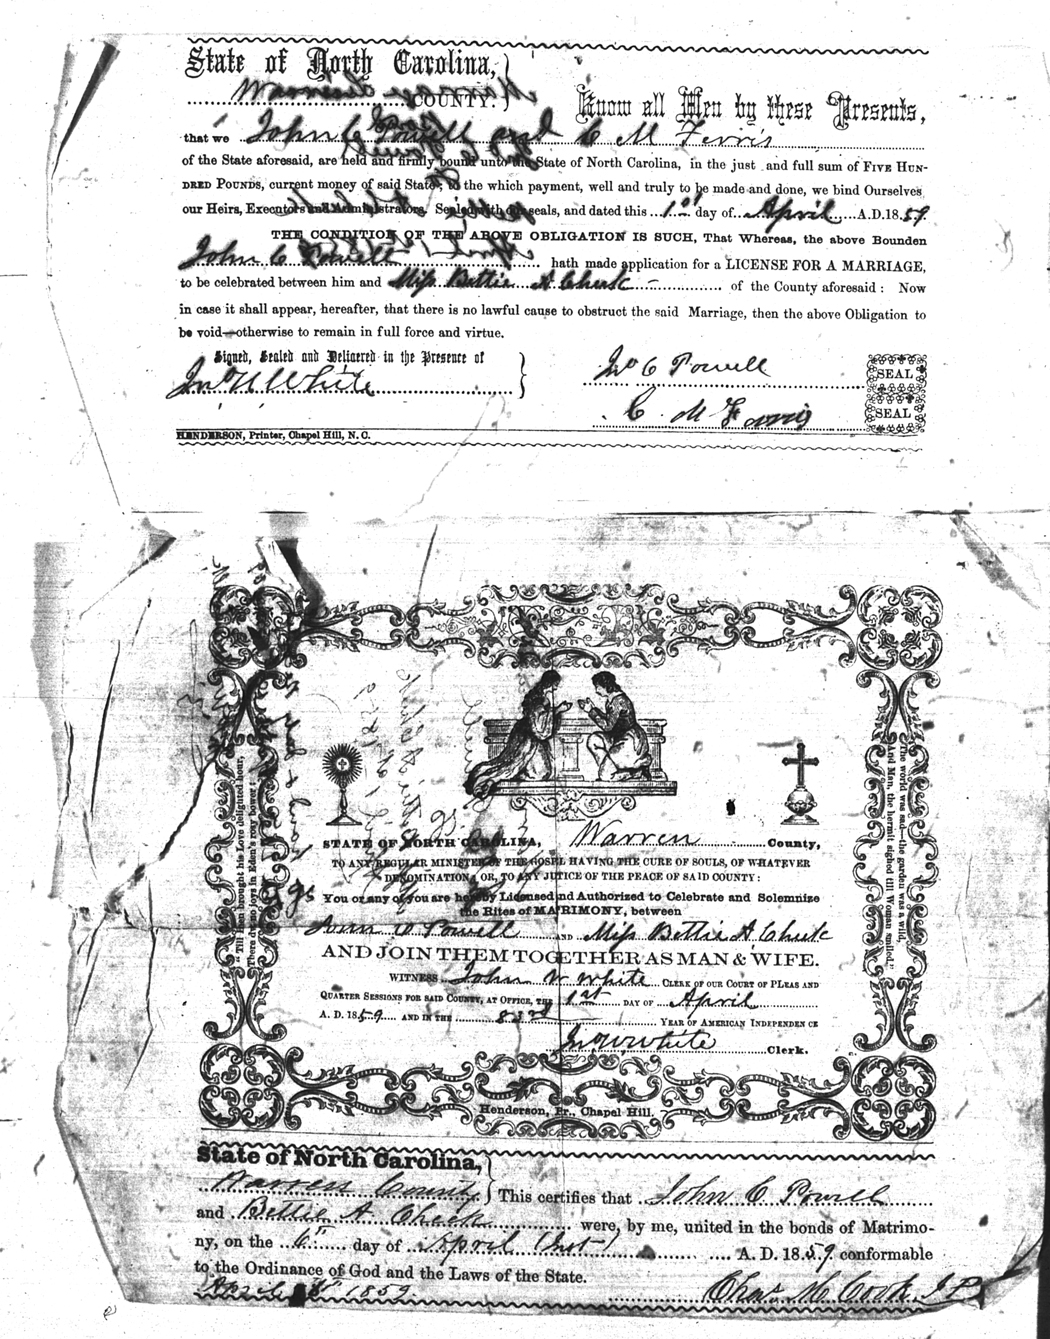 State of North Carolina,
Warren COUNTY. Know all Men by these Presents,
that we John C Powell and C M Ferris
of the State aforesaid, are held and firmly bound unto the State of North Carolina, in the just and full sum of FIVE HUN-
DRED POUNDS, current money of said State; to the which payment, well and truly to be made and done, we bind Ourselves
our Heirs, Executors and Administrators. Sealed with our seals, and dated this 1st day of April A.D. 1859.
THE CONDITION OF THE ABOVE OBLIGATION IS SUCH, That Whereas, the above Bounden
John C Powell hath made application for a LICENSE FOR A MARRIAGE,
to be celebrated between him and Miss Bettie A Cheek of the County aforesaid: Now
in case it shall appear, hereafter, that there is no lawful cause to obstruct the said Marriage, then the above Obligation to
be void—otherwise to remain in full force and virtue.
Signed, Sealed and Delivered in the Presence of
Jno W White
Jno C Powell SEAL
C M Farris SEAL
HENDERSON, Printer, Chapel Hill, N. C.
"Till Hymen brought his Love delighted hour,
There dwelt no joys in Eden's rosy bower:
The world was sad—the garden was a wild,
And Man, the hermit sighed till Woman smiled."
STATE OF NORTH CAROLINA, Warren County,
TO ANY REGULAR MINISTER OF THE GOSPEL HAVING THE CURE OF SOULS, OF WHATEVER
DENOMINATION, OR, TO ANY JUTICE OF THE PEACE OF SAID COUNTY:
You or any of you are hereby Licensed and Authorized to Celebrate and Solemnize
the Rites of MATRIMONY, between
John C Powell AND Miss Bettie A Cheek
AND JOIN THEM TOGETHER AS MAN & WIFE.
WITNESS John W White CLERK OF OUR COURT OF PLEAS AND
QUARTER SESSIONS FOR SAID COUNTY, AT OFFICE, THE 1st DAY OF April
A. D. 1859 AND IN THE 83rd YEAR OF AMERICAN INDEPENDENCE
Jno W White Clerk.
Henderson, Pr., Chapel Hill.
State of North Carolina,
Warren County This certifies that John C Powell
and Bettie A Cheek were, by me, united in the bonds of Matrimo-
ny, on the 6th day of April (Inst) A. D. 1859 conformable
to the Ordinance of God and the Laws of the State.
April 1859. Chas M Cook J P